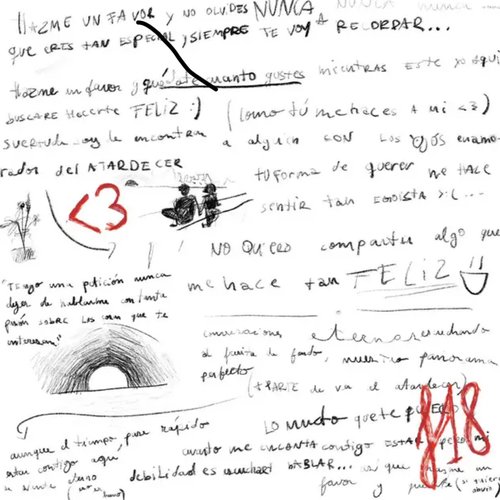 HAZME UN FAVOR y NO OLVIDES NUNCA NUNCA NUNCA
que ERES TAN ESPECIAL y SIEMPRE TE VOY A RECORDAR...
Hazme un favor y quédate cuanto gustes mientras este yo aquí
BUSCARE HACERTE FELIZ :) (como tú me haces a mi <3)
soy de encontrar a alguien CON LOS OJOS enamo-
rados del ATARDECER
tu forma de querer me HACE
sentir tan EGOISTA
<3
NO QUIERO compartir algo que
me hace tan FELIZ
"Tengo una petición nunca
dejes de hablarme con tanta
pasión sobre las cosas que te
interesan"
conversaciones eternas escuchando
de fondo, nuestro panorama
perfecto
(+ PARTE de ver el atardecer)
LO MUCHO que te QUIERO
818
aunque el tiempo pase rápido
estar contigo aquí
se siente eterno
cuanto me encanta contigo ESTAR pero mi
debilidad es escuchart HABLAR... así que hazme un
favor y